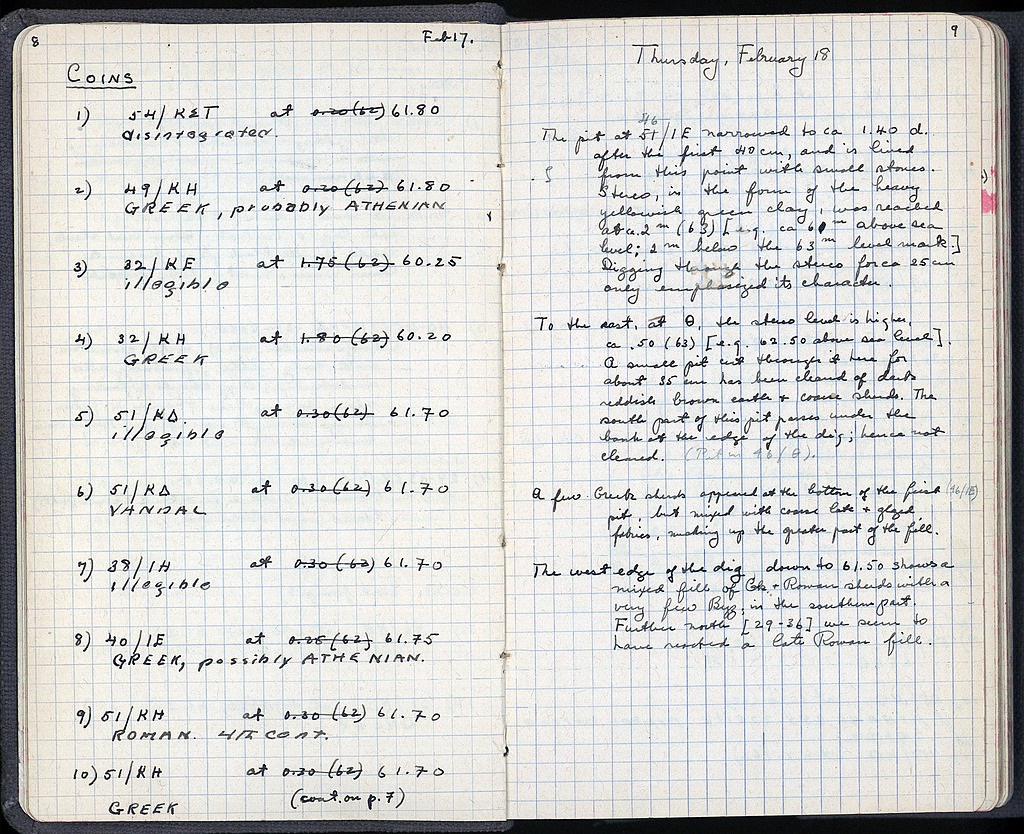 8
Feb 17.
COINS
1) 54/ΚΣΤ at 0.20(62) 61.80
disintegrated.
2) 49/ΚΗ at 0.20(62) 61.80
GREEK, probably ATHENIAN
3) 32/ΚΕ at 1.75(62) 60.25
illegible
4) 32/ΚΗ at 1.80(62) 60.20
GREEK
5) 51/ΚΔ at 0.30(62) 61.70
illegible
6) 51/ΚΔ at 0.30(62) 61.70
VANDAL
7) 38/ΙΗ at 0.30(62) 61.70
illegible
8) 40/ΙΕ at 0.25(62) 61.75
GREEK, possibly ATHENIAN.
9) 51/ΚΗ at 0.30(62) 61.70
ROMAN. 4th CENT.
10) 51/ΚΗ at 0.30(62) 61.70
GREEK (cont. on p. 7)
9
Thursday, February 18
46
The pit at 51/ΙΕ narrowed to ca 1.40 d.
after the first 40 cm, and is lined
from this point with small stones.
Stereo, in the form of the heavy
yellowish green clay, was reached
at ca. 2m (63) [e.g. ca 61m above sea
level; 2m below the 63m level mark.]
Digging through the stereo for ca 25 cm
only emphasized its character.
To the east, at Θ, the stereo level is higher,
ca .50 (63) [e.g. 62.50 above sea level].
A small pit cut through it here for
about 35 cm has been cleared of dark
reddish brown earth + coarse sherds. The
south part of this pit passes under the
bank at the edge of the dig; hence not
cleared. (Pit in 46/Θ).
A few Greek sherds appeared at the bottom of the first (46/ΙΕ)
pit, but mixed with coarse late + glazed
fabrics, making up the greater part of the fill.
The west edge of the dig down to 61.50 shows a
mixed fill of Gk. + Roman sherds with a
very few Byz. in the southern part.
Further north [29-36] we seem to
have reached a late Roman fill.